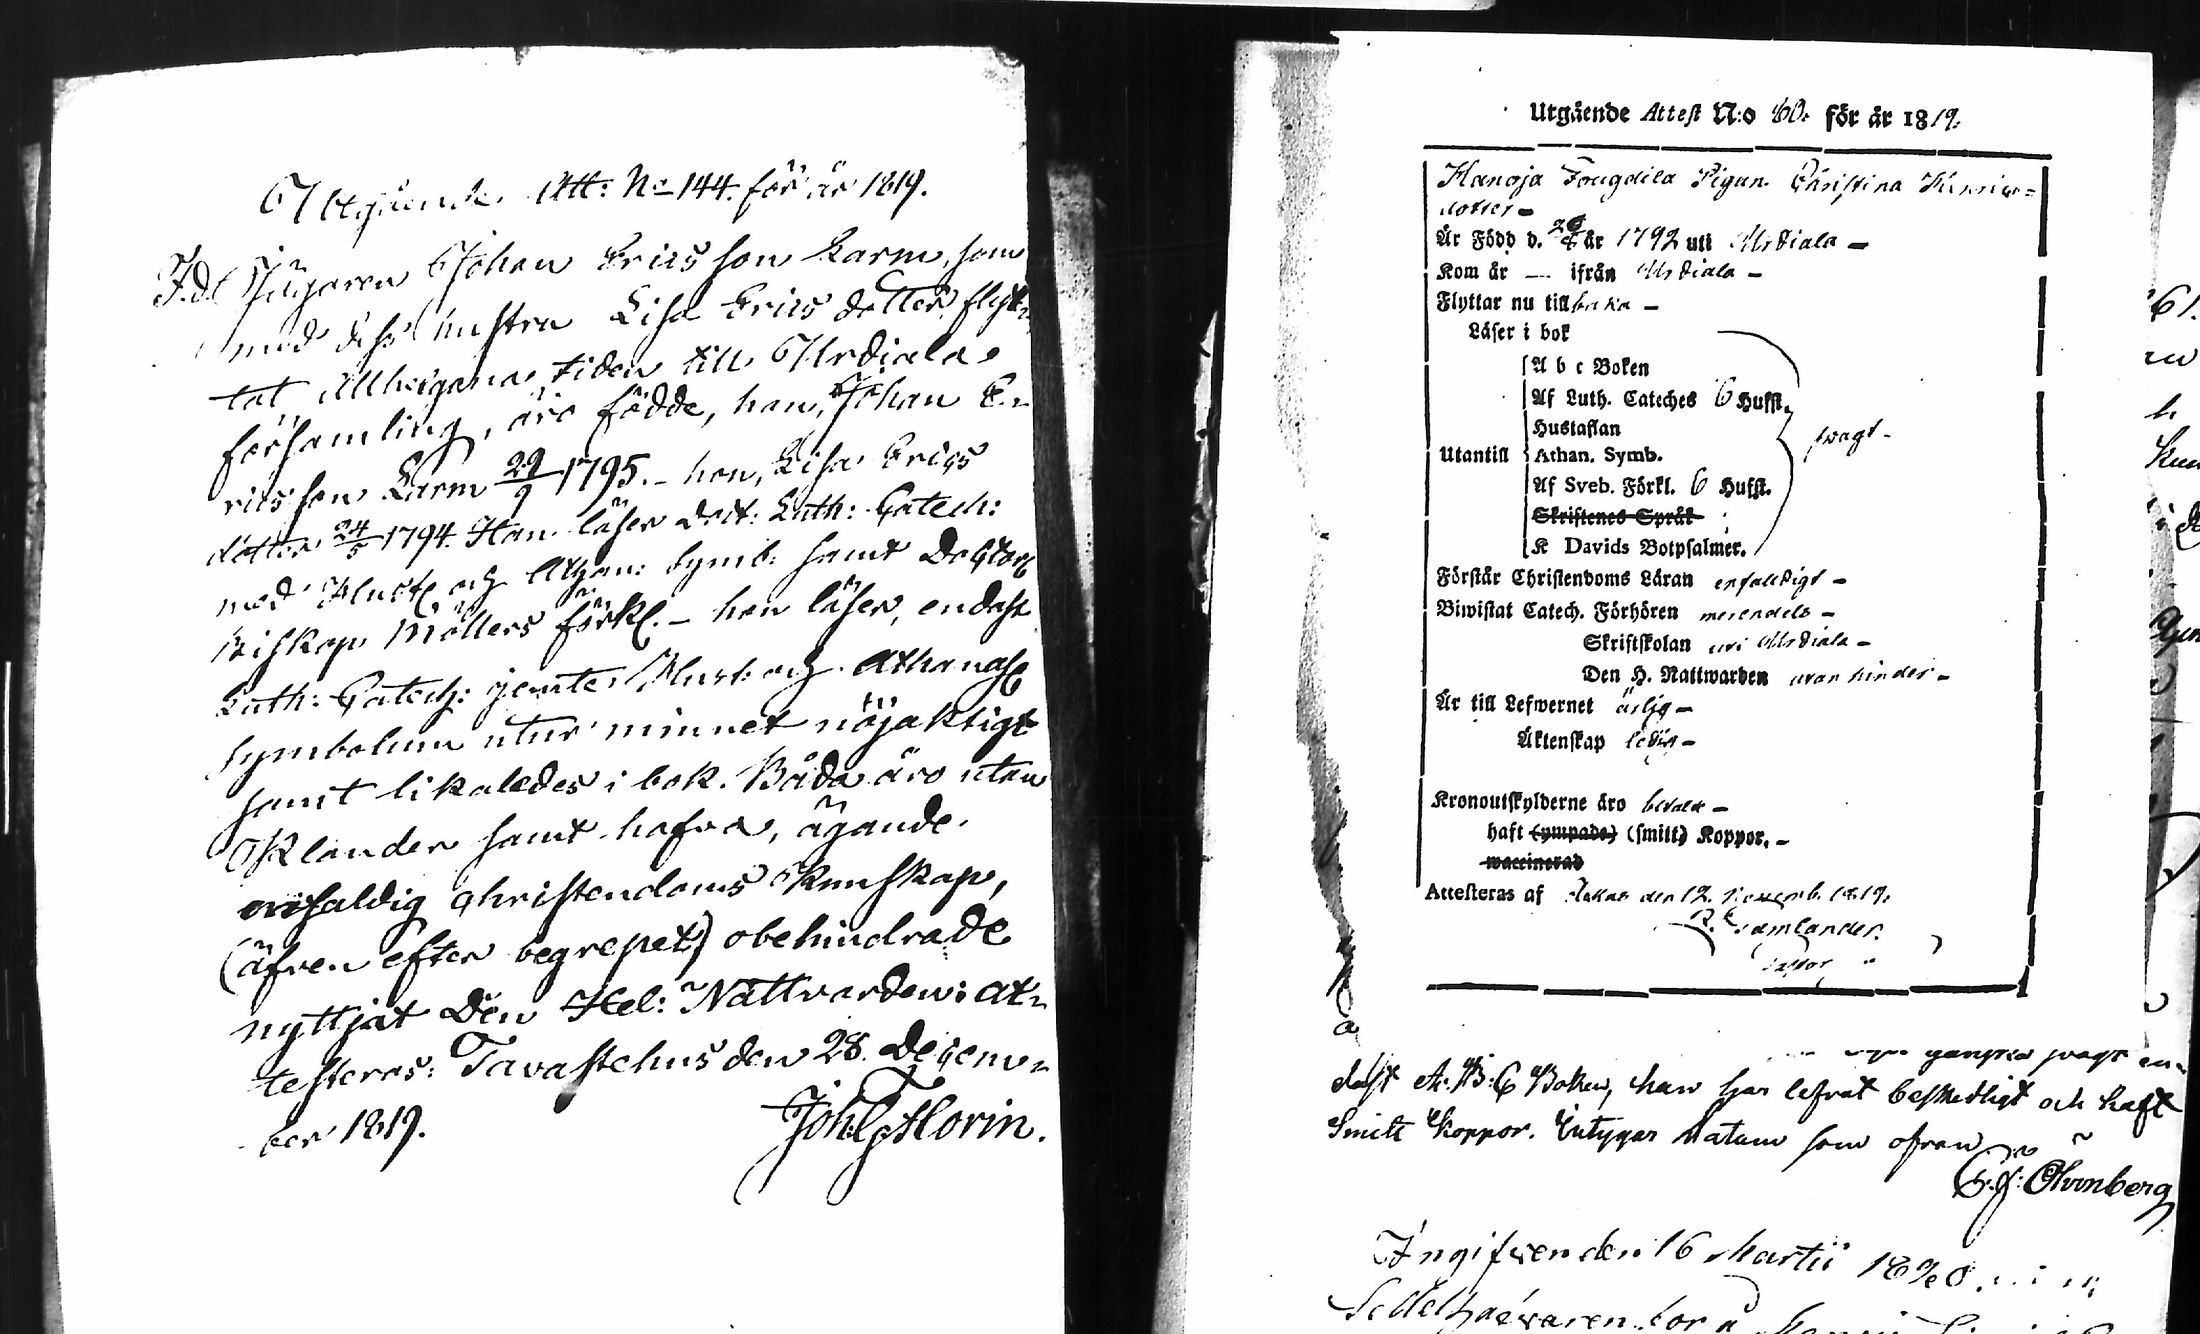 Utgående Att: No 144. för år 1819.
F.d. Jägaren Johan Ericsson Karm, som
med dess hustru Lisa Ericsdotter flyt-
tat Allhelgona tiden till Urdiala
församling, äro födde, han, Johan E-
ricsson Karm 29/9 1795. – hon, Lisa Erics
dotter 24/5 1794. Han läser Doct: Luth: Catech:
med Hust. och Athan: Symb: samt Doctor
Biskop Möllers förkl. – hon läser, endast
Luth: Catech: jemte Hust: och Athanas.
Symbolum utur minnet nöjaktigt
samt likaledes i bok. Båda äro utan
Klander samt hafva, ägande
enfaldig Christendoms Kunskap,
(äfven efter begrepet) obehindrade
nyttjat Den Hel: Nattvarden: At-
testeras: Tavastehus den 28. Decem-
ber 1819.
Joh: G Florin.
Utgående Attest N:o 60. för år 1819.
Hanoja Fougdila Pigan Christina
dotter –
Är Född d. år 1792 uti Urdiala –
Kom år — ifrån Urdiala –
Flyttar nu tillbaka –
Läser i bok
A b c Boken
Af Luth. Cateches 6 Hufst.
Hustaflan
Utantill Athan. Symb.
Af Sveb. Förkl. 6 Hufst.
Skriftenes Språk
K Davids Botpsalmer.
swagt –
Förstår Christendoms Läran enfaldigt –
Biwistat Catech. Förhören merendels –
Skriftskolan uti Urdiala –
Den H. Nattwarden utan hinder –
Är till Lefwernet ärlig –
Äktenskap ledig –
Kronoutskylderne äro betalt –
haft (ympade) (smitt) Koppor. –
waccinerad
Attesteras af den 12. Novemb. 1819.
Pastor
ganska swagt en-
dast A:B:C Boken, han har lefvat beskedligt och haft
Smitt Koppor. Intygar Datum som ofvan
Ingifven den 16 Martii 1820